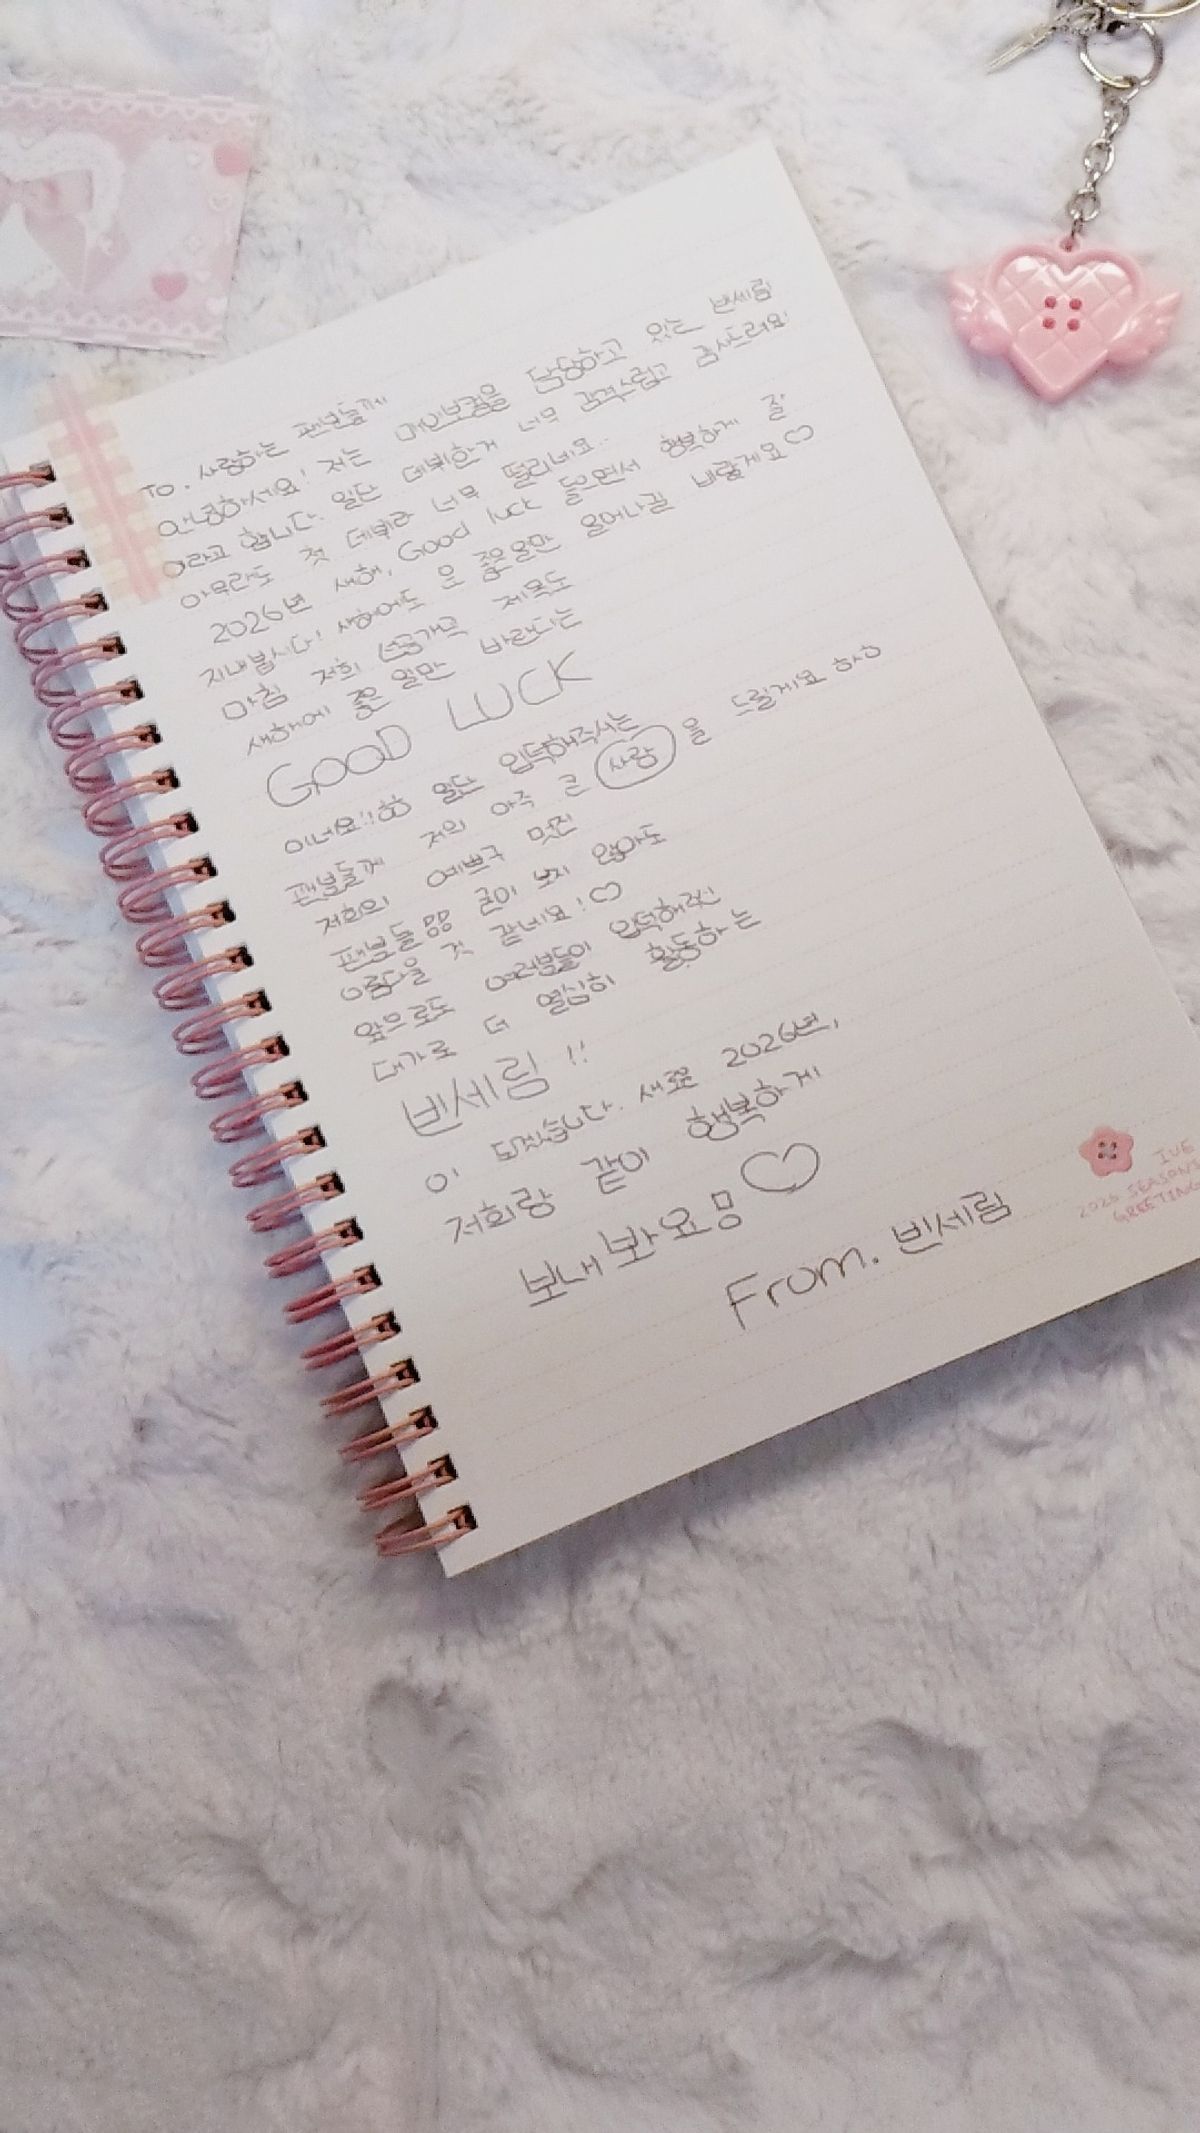 To. 사랑하는 팬분들께
안녕하세요! 저는 메인보컬을 담당하고 있는 빈세림
이라고 합니다. 일단 데뷔한거 너무 감격스럽고 감사드려요!
아무래도 첫 데뷔라 너무 떨리네요..
2026년 새해, Good luck 들으면서 행복하게 잘
지내봅시다! 새해에도 오 좋은일만 일어나길 바랄게요♡
마침 저희 선공개곡 제목도
새해에 좋은 일만 바란다는
GOOD LUCK
이네요!! 일단 입덕해주시는
팬분들께 저의 아주 큰 사랑 을 드릴게요 하하
저희의 예쁘구 멋진
팬분들 굳이 보지 않아도
아름다울 것 같네요!♡
앞으로도 여러분들이 입덕해주신
대가로 더 열심히 활동하는
빈세림!!
이 되겠습니다. 새로운 2026년,
저희랑 같이 행복하게
보내봐요ㅁ♡
From. 빈세림
IVE
2026 SEASON'S
GREETINGS